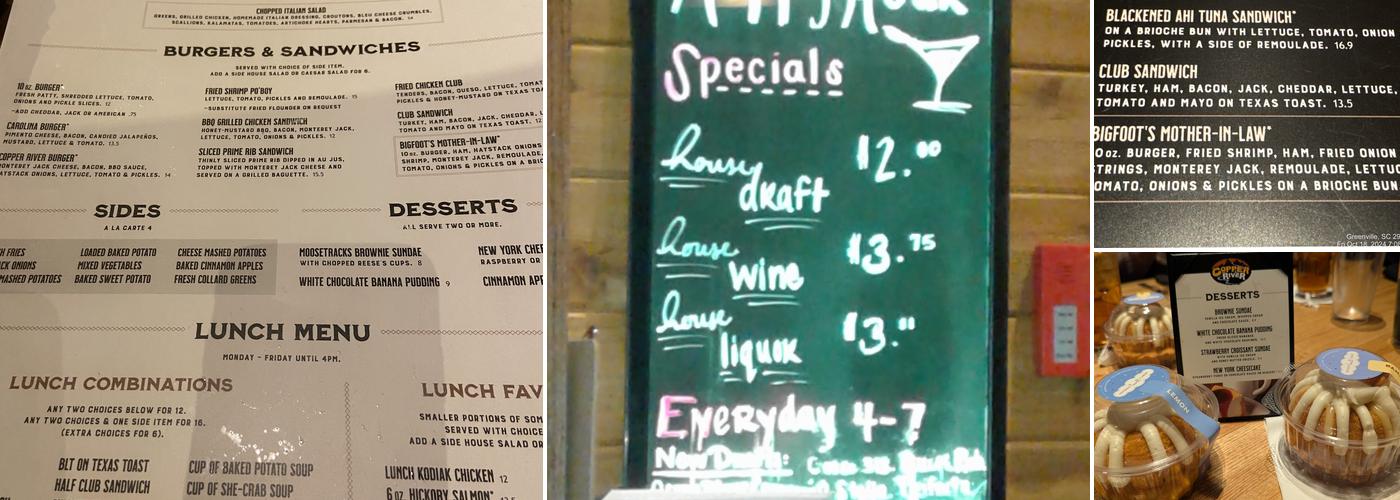 CHOPPED ITALIAN SALAD
GREENS, GRILLED CHICKEN, HOMEMADE ITALIAN DRESSING, CROUTONS, BLEU CHEESE CRUMBLES,
SCALLIONS, KALAMATAS, TOMATOES, ARTICHOKE HEARTS, PARMESAN & BACON. 14
BURGERS & SANDWICHES
SERVED WITH CHOICE OF SIDE ITEM.
ADD A SIDE HOUSE SALAD OR CAESAR SALAD FOR 6.
10 oz. BURGER*
FRESH PATTY, SHREDDED LETTUCE, TOMATO,
ONIONS AND PICKLE SLICES. 12
~ADD CHEDDAR, JACK OR AMERICAN .75
CAROLINA BURGER*
PIMENTO CHEESE, BACON, CANDIED JALAPEÑOS,
MUSTARD, LETTUCE & TOMATO. 13.5
COPPER RIVER BURGER*
MONTEREY JACK CHEESE, BACON, BBQ SAUCE,
HAYSTACK ONIONS, LETTUCE, TOMATO & PICKLES. 14
FRIED SHRIMP PO'BOY
LETTUCE, TOMATO, PICKLES AND REMOULADE. 15
~SUBSTITUTE FRIED FLOUNDER ON REQUEST
BBQ GRILLED CHICKEN SANDWICH
HONEY-MUSTARD BBQ, BACON, MONTEREY JACK,
LETTUCE, TOMATO, ONIONS & PICKLES. 12
SLICED PRIME RIB SANDWICH
THINLY SLICED PRIME RIB DIPPED IN AU JUS,
TOPPED WITH MONTEREY JACK CHEESE AND
SERVED ON A GRILLED BAGUETTE. 15.5
FRIED CHICKEN CLUB
TENDERS, BACON, QUESO, LETTUCE, TOMATO
PICKLES & HONEY-MUSTARD ON TEXAS TO
CLUB SANDWICH
TURKEY, HAM, BACON, JACK, CHEDDAR, L
TOMATO AND MAYO ON TEXAS TOAST. 12
BIGFOOT'S MOTHER-IN-LAW*
10 oz. BURGER, HAM, HAYSTACK ONIONS
SHRIMP, MONTEREY JACK, REMOULADE,
TOMATO, ONIONS & PICKLES ON A BRIO
SIDES
A LA CARTE 4
H FRIES
ACK ONIONS
MASHED POTATOES
LOADED BAKED POTATO
MIXED VEGETABLES
BAKED SWEET POTATO
CHEESE MASHED POTATOES
BAKED CINNAMON APPLES
FRESH COLLARD GREENS
DESSERTS
ALL SERVE TWO OR MORE.
MOOSETRACKS BROWNIE SUNDAE
WITH CHOPPED REESE'S CUPS. 8
WHITE CHOCOLATE BANANA PUDDING 9
NEW YORK CHE
RASPBERRY OR
CINNAMON APP
LUNCH MENU
MONDAY - FRIDAY UNTIL 4PM.
LUNCH COMBINATIONS
ANY TWO CHOICES BELOW FOR 12.
ANY TWO CHOICES & ONE SIDE ITEM FOR 16.
(EXTRA CHOICES FOR 6).
BLT ON TEXAS TOAST
HALF CLUB SANDWICH
CUP OF BAKED POTATO SOUP
CUP OF SHE-CRAB SOUP
LUNCH FAV
SMALLER PORTIONS OF SOM
SERVED WITH CHOICE
ADD A SIDE HOUSE SALAD OR
LUNCH KODIAK CHICKEN 12
6 oz. HICKORY SALMON*
Specials
house draft $2.00
house wine $3.75
house liquor $3.00
Everyday 4-7
New Drafts:
BLACKENED AHI TUNA SANDWICH*
ON A BRIOCHE BUN WITH LETTUCE, TOMATO, ONION
PICKLES, WITH A SIDE OF REMOULADE. 16.9
CLUB SANDWICH
TURKEY, HAM, BACON, JACK, CHEDDAR, LETTUC
TOMATO AND MAYO ON TEXAS TOAST. 13.5
BIGFOOT'S MOTHER-IN-LAW*
0 oz. BURGER, FRIED SHRIMP, HAM, FRIED ONION
STRINGS, MONTEREY JACK, REMOULADE, LETTUC
OMATO, ONIONS & PICKLES ON A BRIOCHE BUN
Greenville, SC 29
Fri Oct 18, 2024 7:0
COPPER RIVER
DESSERTS
BROWNIE SUNDAE
WHITE CHOCOLATE BANANA PUDDING
STRAWBERRY CROISSANT SUNDAE
NEW YORK CHEESECAKE
LEMON